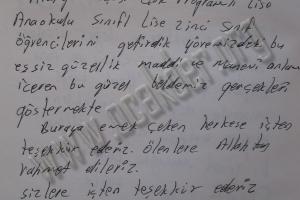 Programlı Lise
Anaokulu Sınıfı Lise 2inci Sınıf
öğrencilerini getirdik yöremizdeki bu
eşsiz güzellik maddi ve manevi anlam
içeren bu güzel beldemiz gerçekleri
göstermekte
Buraya emek çeken herkese içten
teşekkür ederiz. ölenlere Allahtan
rahmet dileriz.
sizlere içten teşekkür ederiz